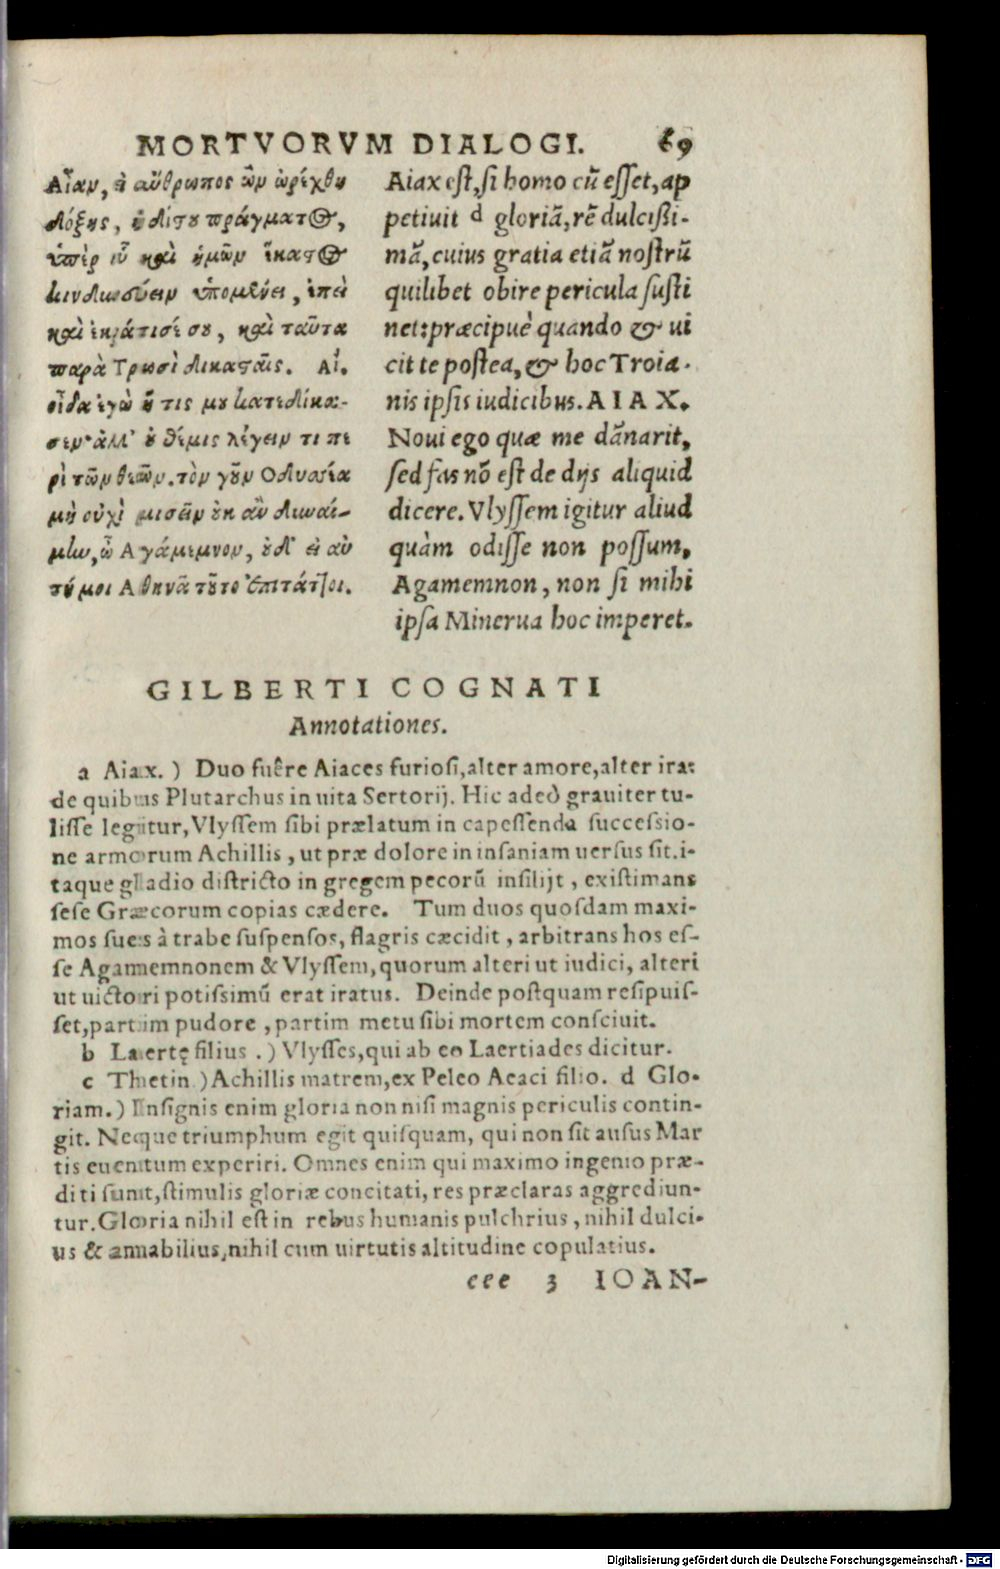 MORTVORVM DIALOGI. 69
Αἶαν, εἰ ἄνθρωπος ὢν ὠρέχθη
δόξης, ἡδίστου πράγματος,
ὑπὲρ οὗ καὶ ἡμῶν ἕκαστος
κινδυνεύειν ὑπομένει, ἐπεὶ
καὶ ἐκράτησέ σου, καὶ ταῦτα
παρὰ Τρωσὶ δικασταῖς. ΑΙ.
οἶδα ἐγὼ ἥ τις μου κατεδίκα-
σεν· ἀλλ' οὐ θέμις λέγειν τι πε
ρὶ τῶν θεῶν. τὸν γοῦν Οδυσσέα
μὴ οὐχὶ μισεῖν οὐκ ἂν δυναί-
μην, ὦ Αγάμεμνον, οὐδ' εἰ αὐ
τή μοι Αθηνᾶ τοῦτο ἐπιτάττοι.
Aiax est, si homo cũ esset, ap
petiuit d gloriã, rẽ dulcißi-
mã, cuius gratia etiã nostrũ
quilibet obire pericula susti
net: præcipuè quando & ui
cit te postea, & hoc Troia-
nis ipsis iudicibus. AIAX.
Noui ego quæ me dãnarit,
sed fas nõ est de dijs aliquid
dicere. Vlyssem igitur aliud
quàm odisse non possum,
Agamemnon, non si mihi
ipsa Minerua hoc imperet.
GILBERTI COGNATI
Annotationes.
a Aiax. ) Duo fuêre Aiaces furiosi, alter amore, alter ira:
de quibus Plutarchus in uita Sertorij. Hic adeò grauiter tu-
lisse legitur, Vlyssem sibi prælatum in capessenda successio-
ne armorum Achillis, ut præ dolore in insaniam uersus sit. i-
taque gladio districto in gregem pecorũ insilijt, existimans
sese Græcorum copias cædere. Tum duos quosdam maxi-
mos sues à trabe suspensos, flagris cæcidit, arbitrans hos es-
se Agamemnonem & Vlyssem, quorum alteri ut iudici, alteri
ut uictori potissimũ erat iratus. Deinde postquam resipuis-
set, partim pudore, partim metu sibi mortem consciuit.
b Laertę filius .) Vlysses, qui ab eo Laertiades dicitur.
c Thetin.) Achillis matrem, ex Peleo Aeaci filio. d Glo-
riam.) Insignis enim gloria non nisi magnis periculis contin-
git. Neque triumphum egit quisquam, qui non sit ausus Mar
tis euentum experiri. Omnes enim qui maximo ingenio præ-
diti sunt, stimulis gloriæ concitati, res præclaras aggrediun-
tur. Gloria nihil est in rebus humanis pulchrius, nihil dulci-
us & amabilius, nihil cum uirtutis altitudine copulatius.
eee 3 IOAN-
Digitalisierung gefördert durch die Deutsche Forschungsgemeinschaft - DFG